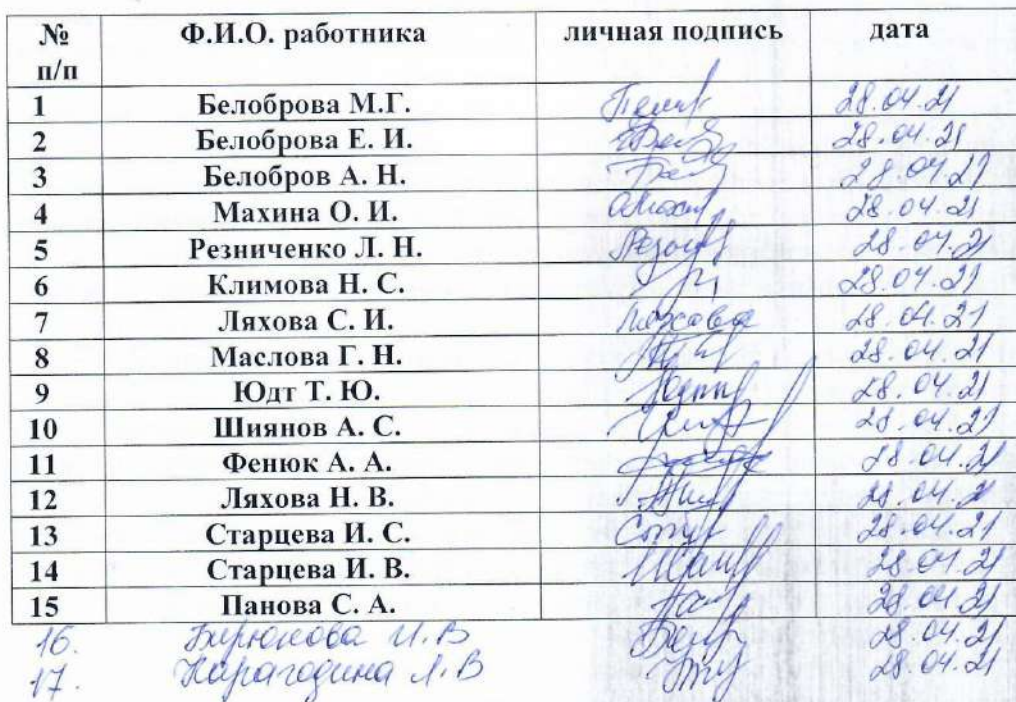 № п/п Ф.И.О. работника личная подпись дата
1 Белоброва М.Г. 28.04.21
2 Белоброва Е. И. 28.04.21
3 Белобров А. Н. 28.04.21
4 Махина О. И. 28.04.21
5 Резниченко Л. Н. 28.04.21
6 Климова Н. С. 28.04.21
7 Ляхова С. И. Ляхова 28.04.21
8 Маслова Г. Н. 28.04.21
9 Юдт Т. Ю. 28.04.21
10 Шиянов А. С. 28.04.21
11 Фенюк А. А. 28.04.21
12 Ляхова Н. В. 28.04.21
13 Старцева И. С. 28.04.21
14 Старцева И. В. 28.04.21
15 Панова С. А. 28.04.21
16. Бирюкова И.В 28.04.21
17. Карагодина Л.В 28.04.21